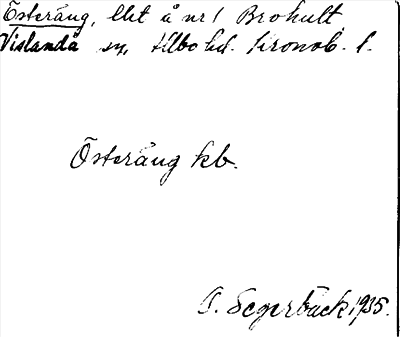 Österäng, lht å nr 1 Brohult,
Vislanda sn, Allbo hd. Kronob. l.
Österäng kb.
A. Segerbäck 1935.